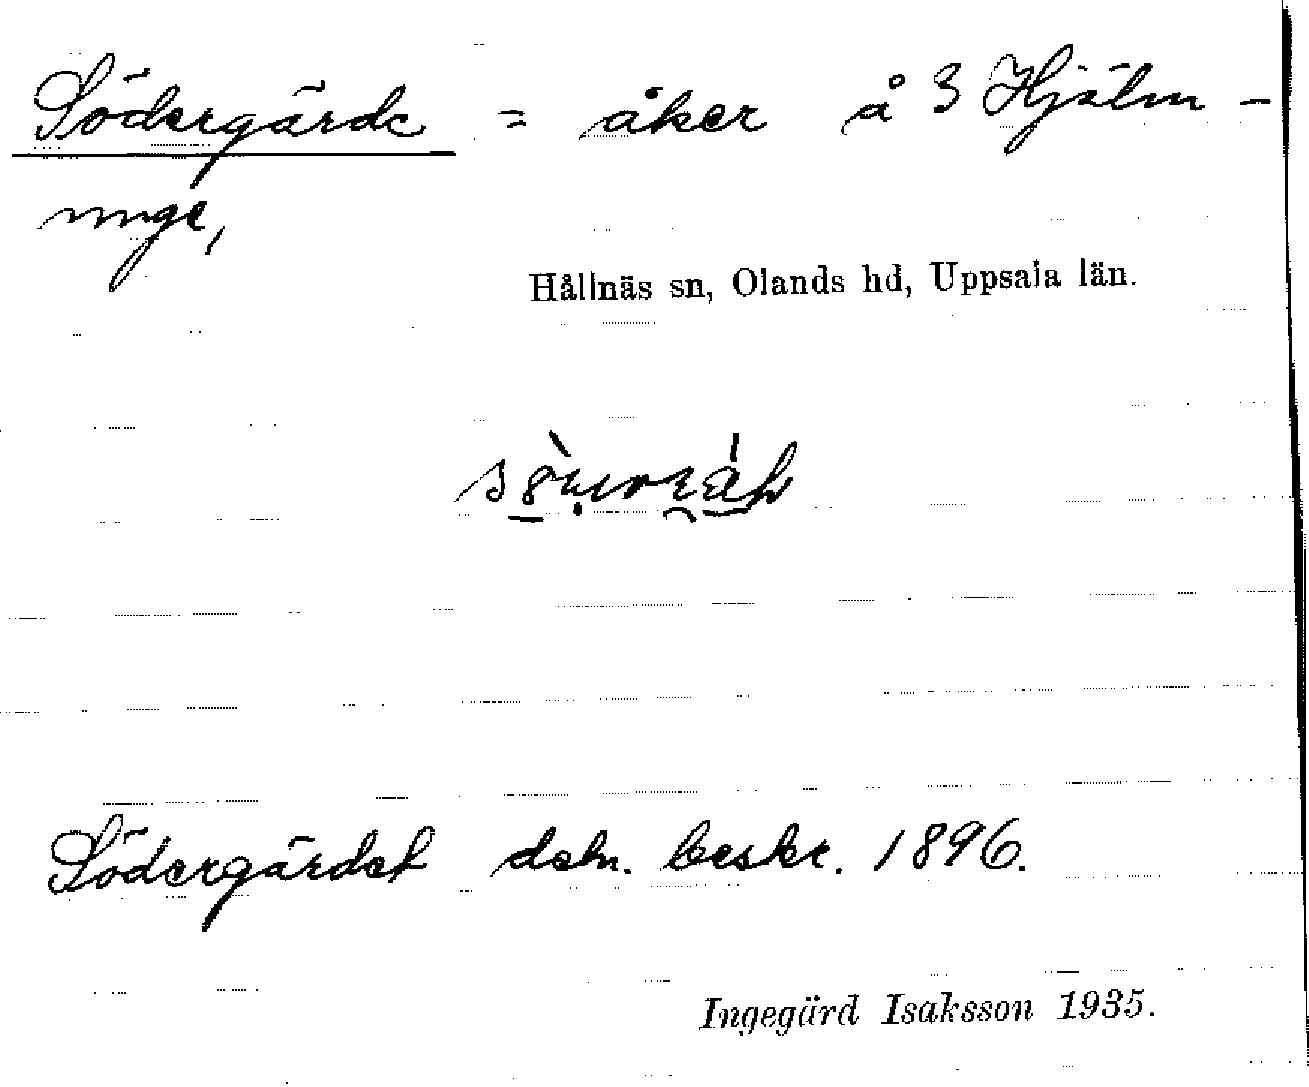 Södergärde = åker å 3 Hjälm-
unge,
Hållnäs sn, Olands hd, Uppsala län.
Södergärdet dsbr. beskr. 1896.
Ingegärd Isaksson 1935.